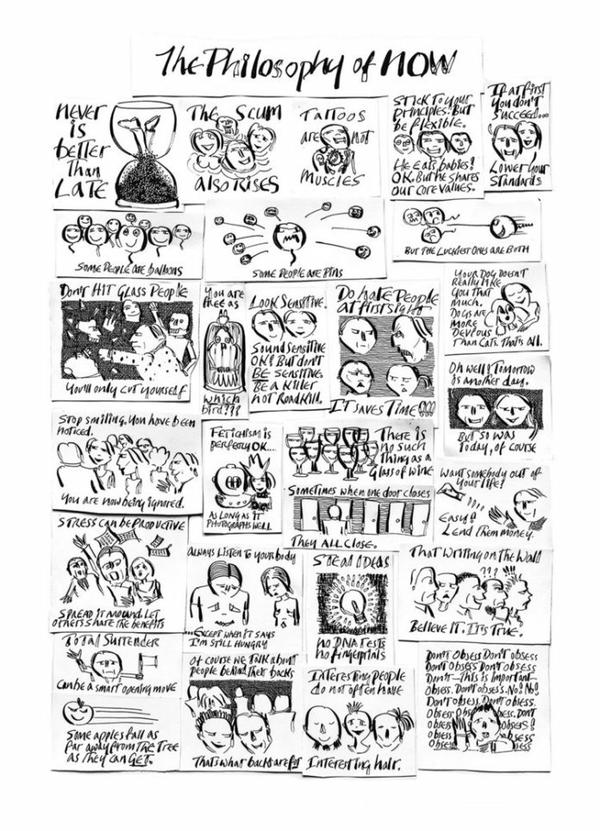 The Philosophy of NOW
Never
is
better
than
Late
The Scum
Also Rises
Tattoos
are not
Muscles
Stick to your
principles. But
be flexible.
He eats babies?
OK. But he shares
our core values.
If at first
you don't
succeed...
Lower your
Standards
Some people are balloons
Some people are pins
But the luckiest ones are both
Don't hit glass people
You'll only cut yourself
You are
free as
which
bird???
Look Sensitive.
Sound sensitive
OK! But don't
BE sensitive
Be a killer
not roadkill.
Do hate people
at first sight
It saves time!!!
Your dog doesn't
really like
you that
much.
Dogs are
more
devious
than cats. That's all.
Oh well! Tomorrow
is another day.
But so was
today, of course
Stop smiling. You have been
noticed.
You are now being ignored.
Fetichism is
perfectly OK...
as long as it
photographs well
There is
no such
thing as a
glass of wine
Sometimes when one door closes
They all close.
Want somebody out of
your life?
Easy!
Lend them money.
Stress can be productive
Spread it around. Let
others share the benefits
Always listen to your body
...Except when it says
I'm still hungry
Steal ideas
No DNA tests
No fingerprints
That writing on the wall
???
Believe it. It's true.
Total surrender
can be a smart opening move
Of course we talk about
people behind their backs
That's what backs are for
Interesting people
do not often have
interesting hair.
Some apples fall as
far away from the tree
as they can get.
Don't obsess Don't obsess
Don't obsess Don't obsess
Don't—This is important—
obsess. Don't obsess. No! No!
Don't obsess Don't obsess.